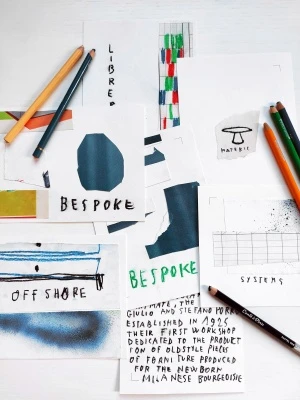 LIBRER
MATERIC
BESPOKE
BESPOKE
SYSTEMS
OFFSHORE
GIULIO AND STEFANO
ESTABLISHED IN 1926
THEIR FIRST WORKSHOP
DEDICATED TO THE PRODUCT
ION OF OLDSTYLE PIECES
OF FURNITURE PRODUCED
FOR THE NEWBORN
MILANESE BOURGEOISIE